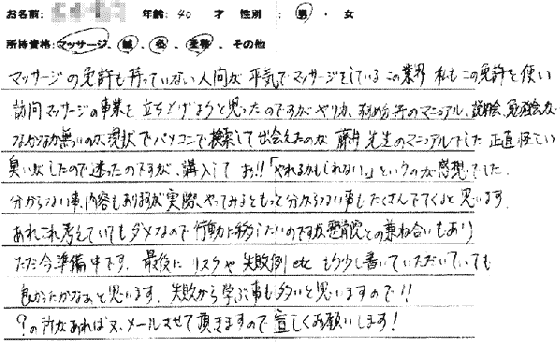 お名前: 年齢: 40 才 性別 : 男 ・ 女
所持資格: マッサージ、鍼、灸、柔整、その他
マッサージの免許も持っていない人間が平気でマッサージをしているこの業界 私もこの免許を使い
訪問マッサージの事業を立ち上げようと思ったのですが やり方、始め方のマニュアル、説明会、勉強会が
なかなか無いので、現状でパソコンで検索して出会えたのが 藤井先生のマニュアルでした 正直怪しい
臭いがしたので迷ったのですが、購入して お!!「やれるかもしれない。」というのが感想でした。
分からない事、内容もありますが 実際、やってみるともっと分からない事もたくさんでてくると思います。
あれこれ考えていてもダメなので 行動に移したいのですが 整骨院との兼ね合いもあり
ただ今準備中です。最後に リスクや失敗例 etc もう少し書いていただいていても
良かったかなぁと思います。失敗から学ぶ事も多いと思いますので!!
?の所があれば又、メールさせて頂きますので 宜しくお願いします!